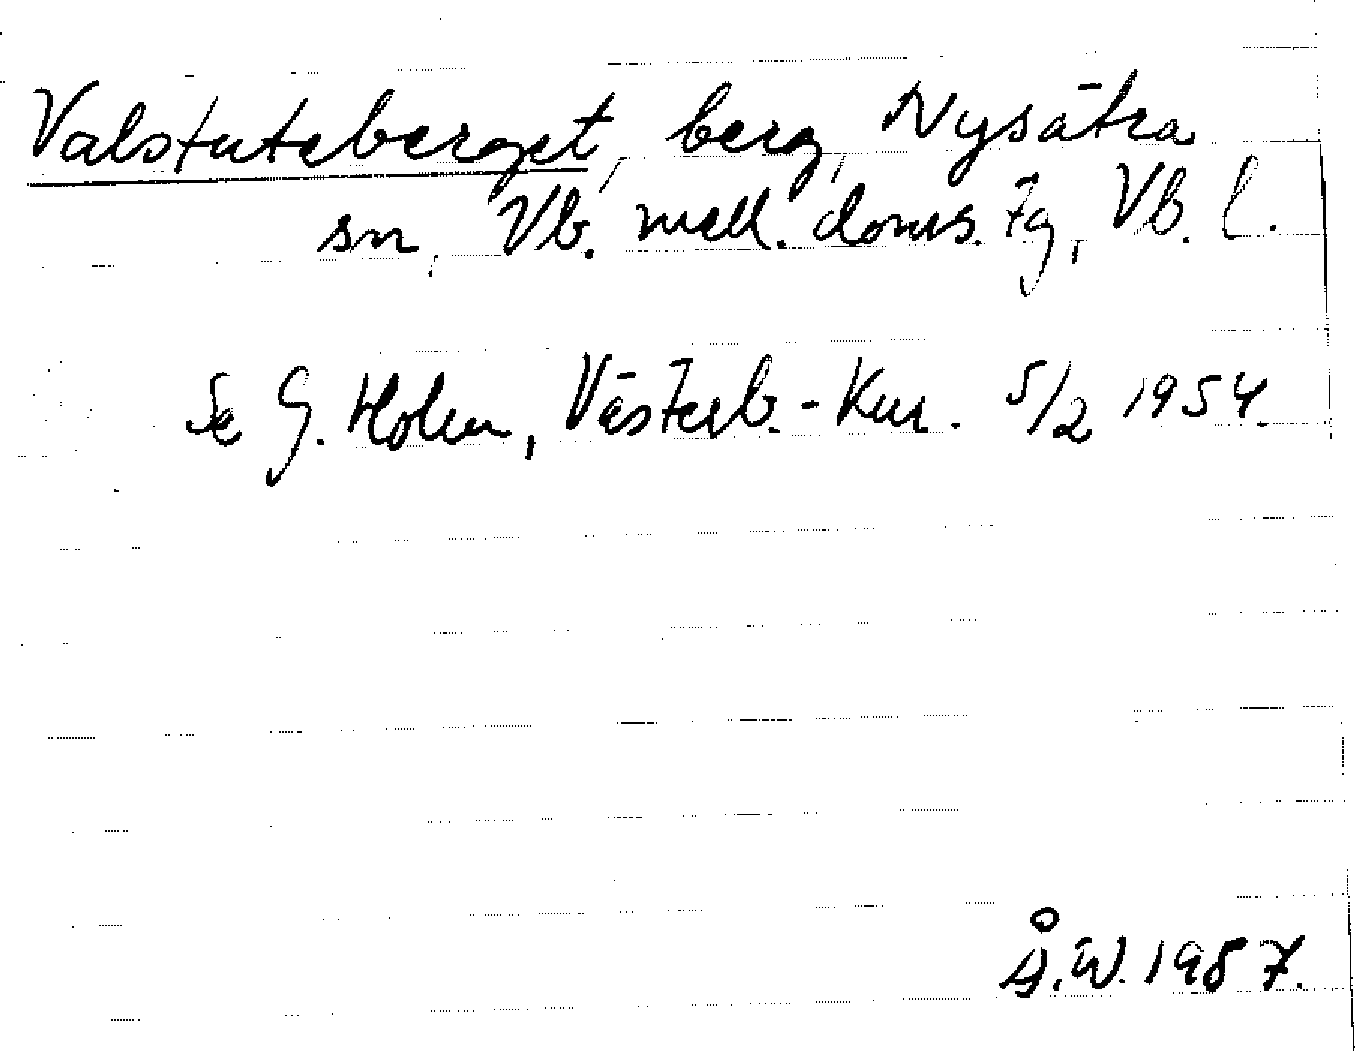 Valstuteberget, berg, Nysätra
sn, Vb. mell. doms. tg, Vb. l.
Se G. Holm, Västerb.-Kur. 5/2 1954.
Å.W. 1987.